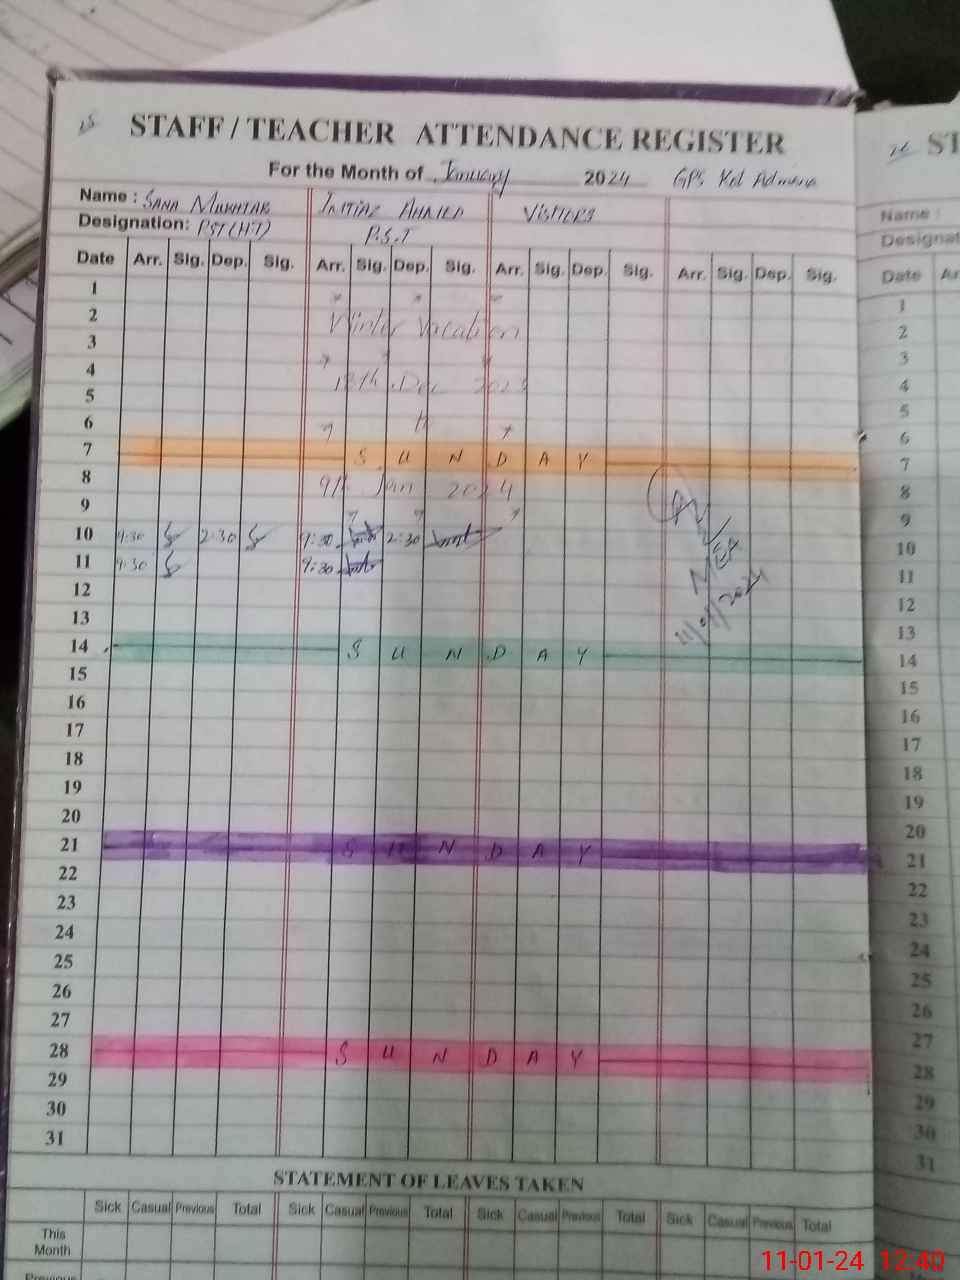 25 STAFF / TEACHER ATTENDANCE REGISTER
For the Month of January 2024 GPS
Name : SANA MUKHTAR IMTIAZ AHMED VISITORS
Designation: PST(HT) P.S.T
Date Arr. Sig. Dep. Sig. Arr. Sig. Dep. Sig. Arr. Sig. Dep. Sig. Arr. Sig. Dep. Sig.
1
2 Winter Vacation
3
4 Dec 2023
5
6
7 S U N D A Y
8 Jan 2024
9
10 9:30 2:30 9:30 2:30
11 9:30 9:30
MEA
11/01/2024
12
13
14 S U N D A Y
15
16
17
18
19
20
21 S U N D A Y
22
23
24
25
26
27
28 S U N D A Y
29
30
31
STATEMENT OF LEAVES TAKEN
Sick Casual Previous Total Sick Casual Previous Total Sick Casual Previous Total Sick Casual Previous Total
This
Month
Previous
26 ST
Name :
Designat
Date Ar
1
2
3
4
5
6
7
8
9
10
11
12
13
14
15
16
17
18
19
20
21
22
23
24
25
26
27
28
29
30
31
11-01-24 12:40